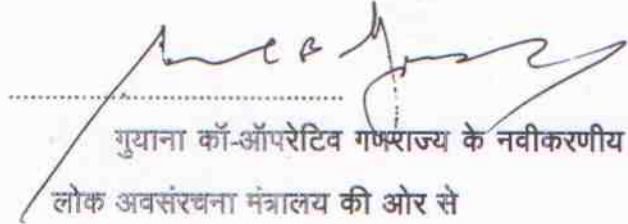 गुयाना कॉ-ऑपरेटिव गणराज्य के नवीकरणीय
लोक अवसंरचना मंत्रालय की ओर से